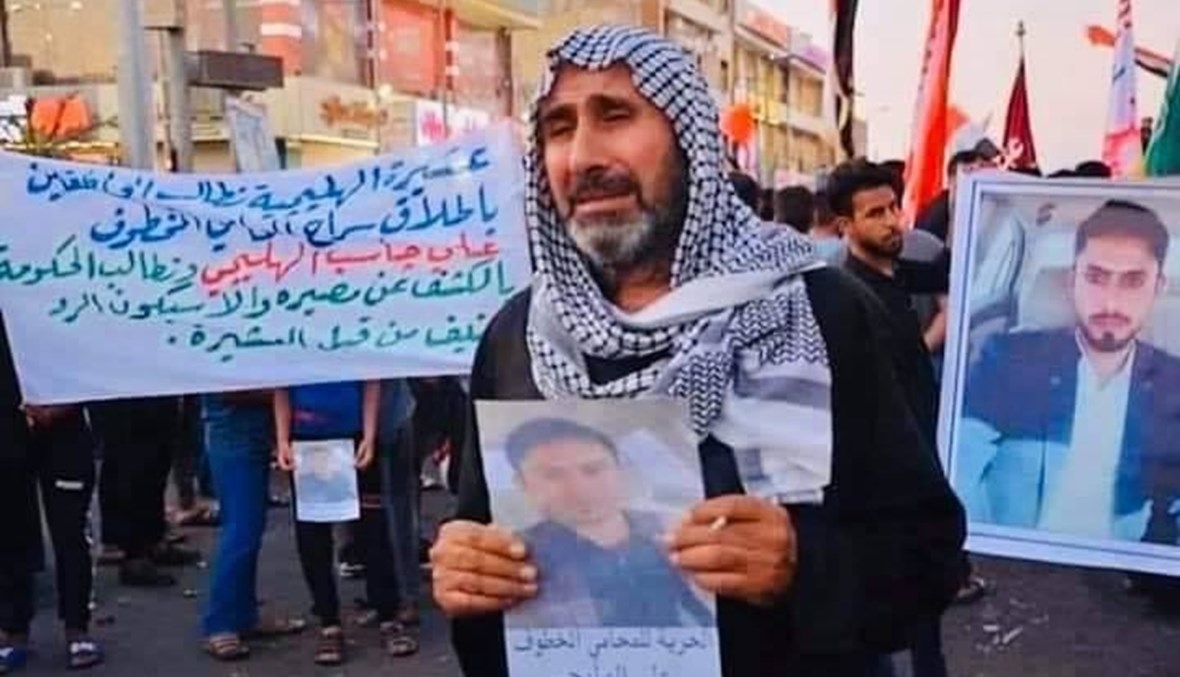 عشيرة الهليجية نطالب الخاطفين
باطلاق سراح المحامي المخطوف
علي جاسب الهليجي ونطالب الحكومة
بالكشف عن مصيره والا سيكون الرد
من قبل العشيرة .
الحرية للمحامي المخطوف
علي